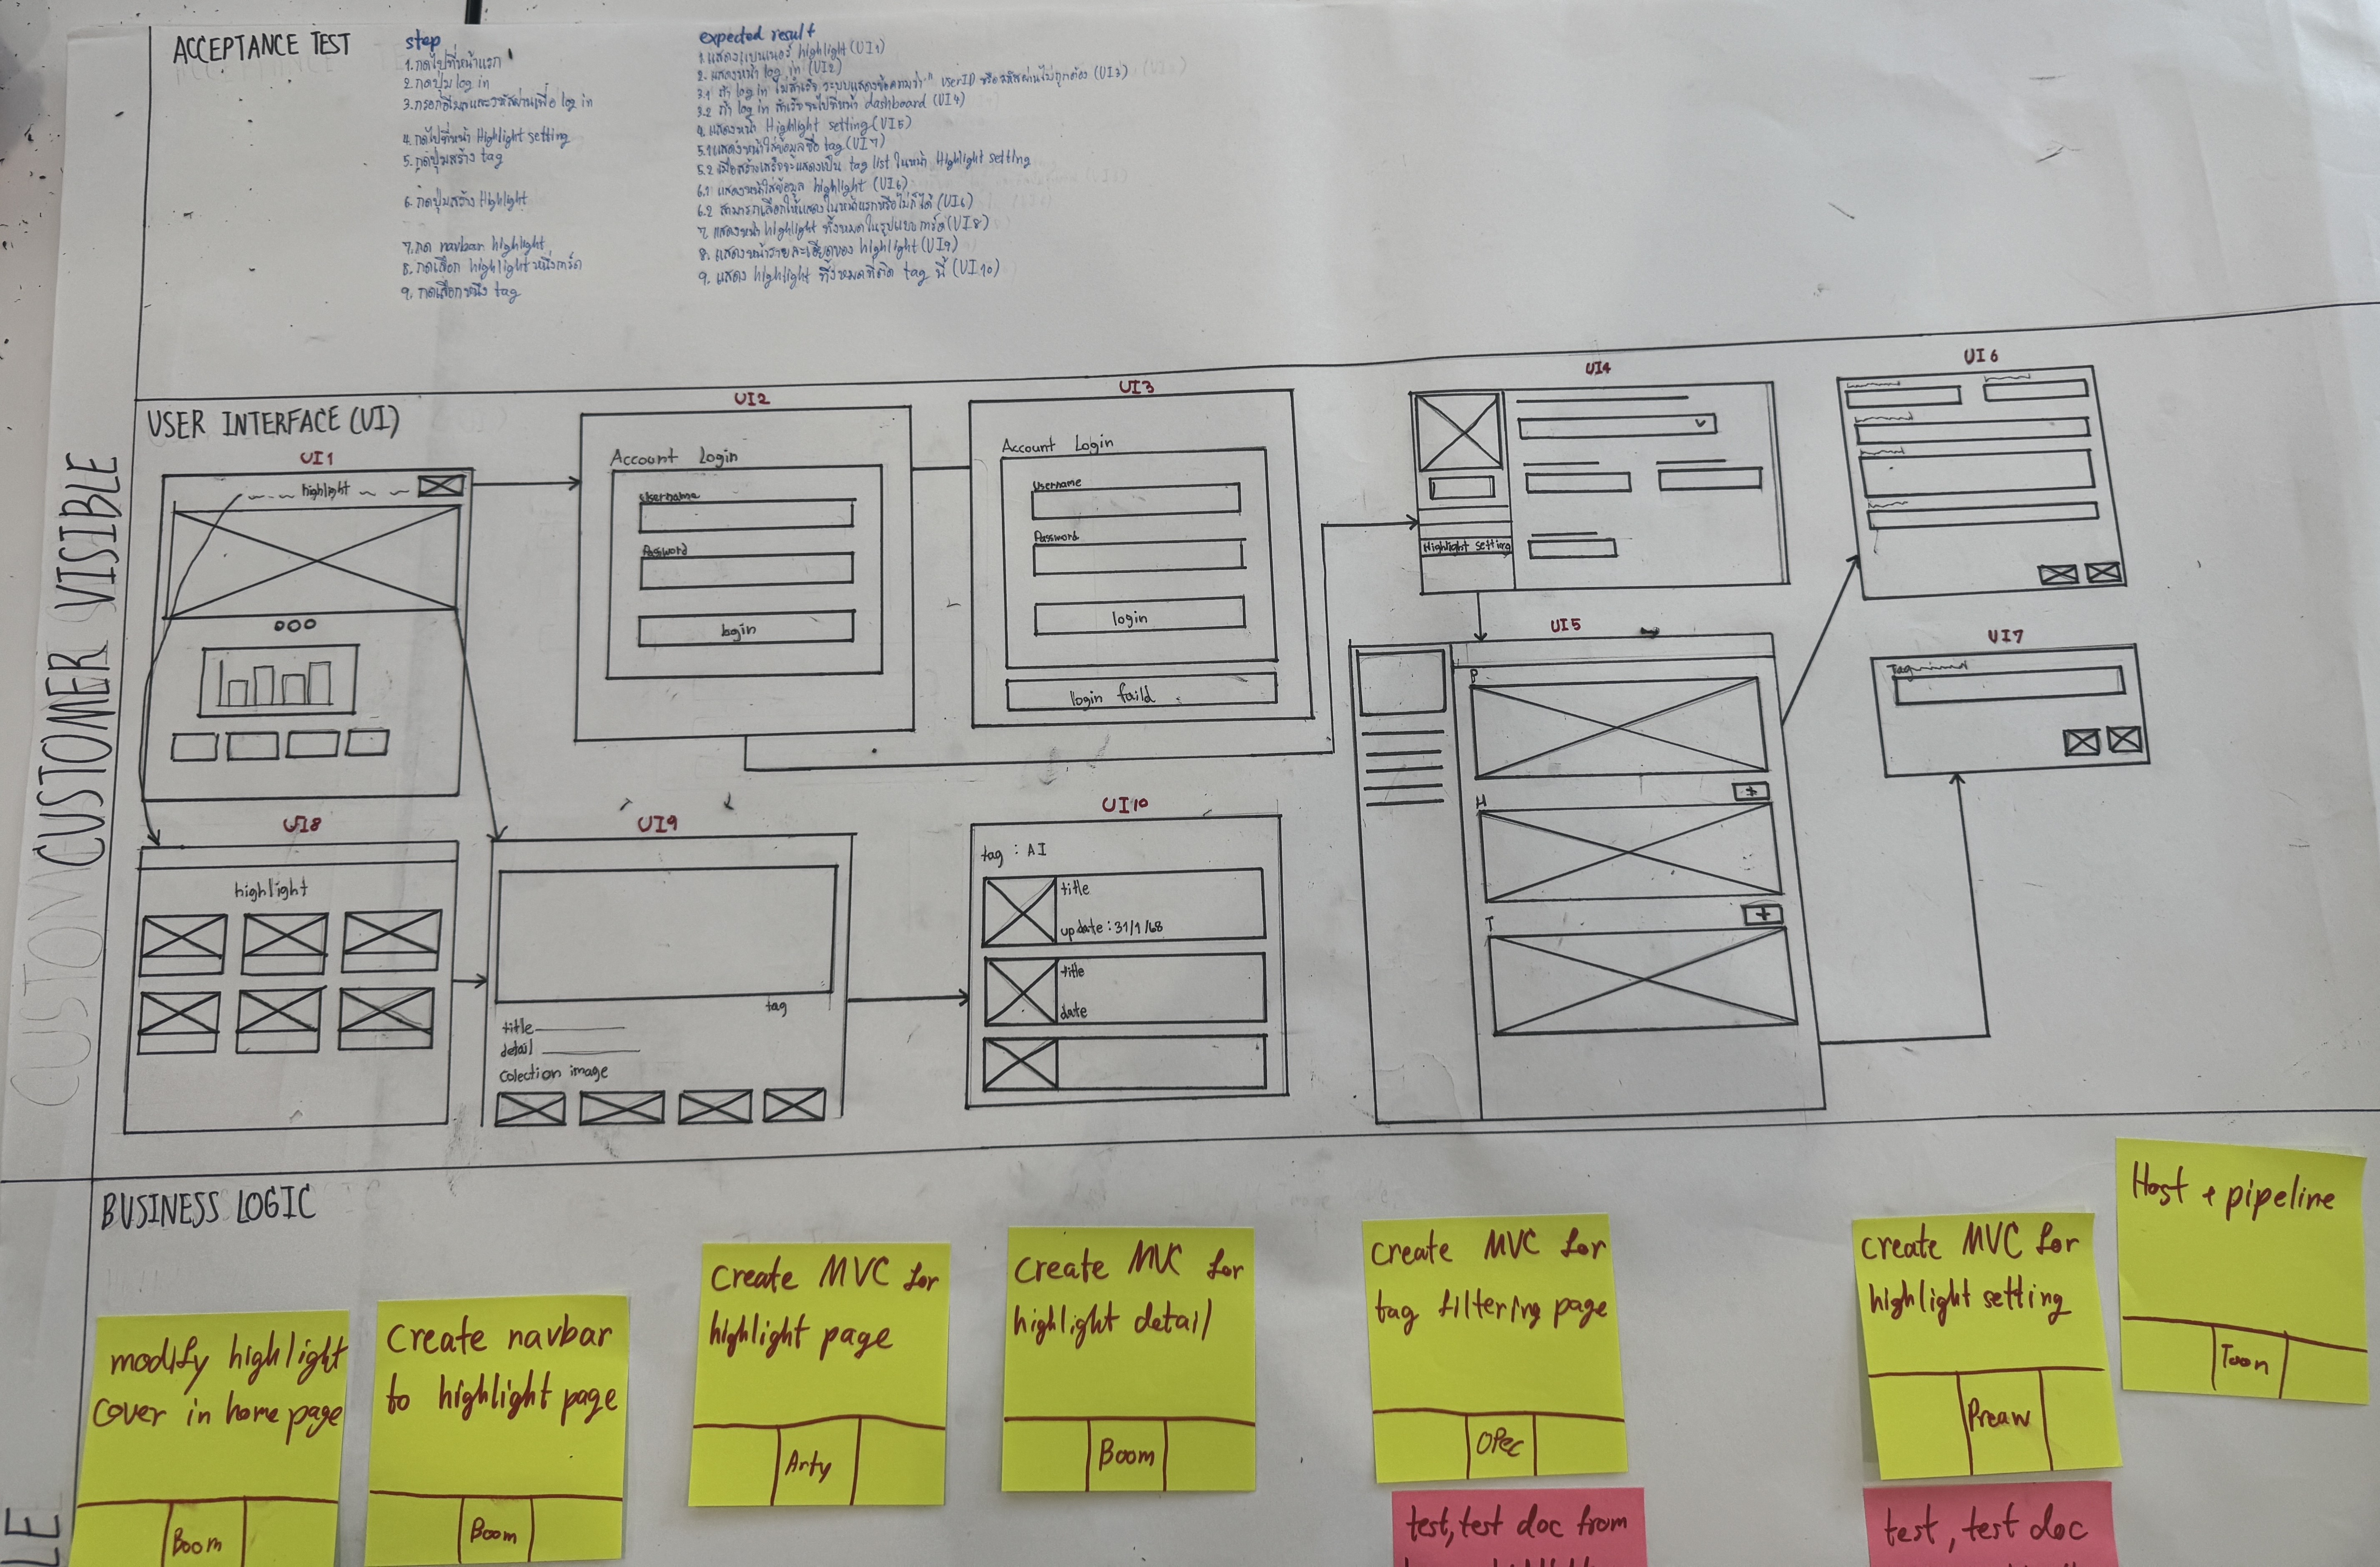 ACCEPTANCE TEST
step
1. กดไปที่หน้าแรก
2. กดปุ่ม log in
3. กรอกอีเมลและรหัสผ่านเพื่อ log in
4. กดไปที่หน้า Highlight setting
5. กดปุ่มสร้าง tag
6. กดปุ่มสร้าง Highlight
7. กด navbar highlight
8. กดเลือก highlight หนึ่งการ์ด
9. กดเลือกหนึ่ง tag
expected result
1. แสดงแบนเนอร์ highlight (UI1)
2. แสดงหน้า log in (UI2)
3.1 ถ้า log in ไม่สำเร็จ ระบบแสดงข้อความว่า " userID หรือรหัสผ่านไม่ถูกต้อง (UI3)
3.2 ถ้า log in สำเร็จจะไปที่หน้า dashboard (UI4)
4. แสดงหน้า Highlight setting (UI5)
5.1 แสดงหน้าใส่ข้อมูลชื่อ tag (UI7)
5.2 เมื่อสร้างเสร็จจะแสดงเป็น tag list ในหน้า Highlight setting
6.1 แสดงหน้าใส่ข้อมูล highlight (UI6)
6.2 สามารถเลือกให้แสดงในหน้าแรกหรือไม่ก็ได้ (UI6)
7. แสดงหน้า highlight ทั้งหมดในรูปแบบการ์ด (UI8)
8. แสดงหน้ารายละเอียดของ highlight (UI9)
9. แสดง highlight ทั้งหมดที่ติด tag นี้ (UI10)
CUSTOMER VISIBLE
CUSTOM
USER INTERFACE (UI)
UI1
highlight
UI2
Account Login
Username
Password
login
UI3
Account Login
Username
Password
login
login faild
UI4
Highlight setting
UI6
UI5
P
+
H
+
T
UI7
Tag
UI8
highlight
UI9
tag
title
detail
Colection image
UI10
tag : AI
title
update : 31/1/68
title
date
BUSINESS LOGIC
modify highlight
cover in home page
Boom
Create navbar
to highlight page
Boom
Create MVC for
highlight page
Arty
Create MVC for
highlight detail
Boom
Create MVC for
tag filtering page
OPEC
test, test doc from
Create MVC for
highlight setting
Preaw
test, test doc
Host + pipeline
Toon
LE